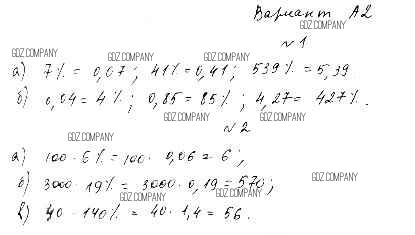 Вариант А2
№1
а) 7% = 0,07; 41% = 0,41; 539% = 5,39
б) 0,04 = 4%; 0,85 = 85%; 4,27 = 427%.
№2
а) 100 · 6% = 100 · 0,06 = 6;
б) 3000 · 19% = 3000 · 0,19 = 570;
в) 40 · 140% = 40 · 1,4 = 56.
GDZ.COMPANY
GDZ.COMPANY
GDZ.COMPANY
GDZ.COMPANY
GDZ.COMPANY
GDZ.COMPANY
GDZ.COMPANY
GDZ.COMPANY
GDZ.COMPANY
GDZ.COMPANY